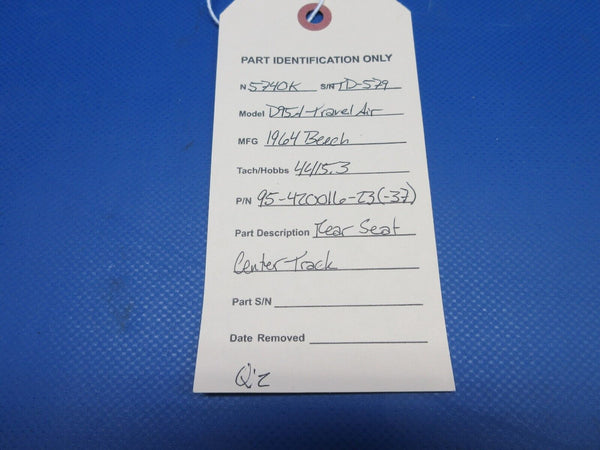 PART IDENTIFICATION ONLY
N 5740K S/N TD-579
Model D95A-Travel Air
MFG 1964 Beech
Tach/Hobbs 4415.3
P/N 95-420016-23(-37)
Part Description Rear Seat
Center Track
Part S/N
Date Removed
Q'2